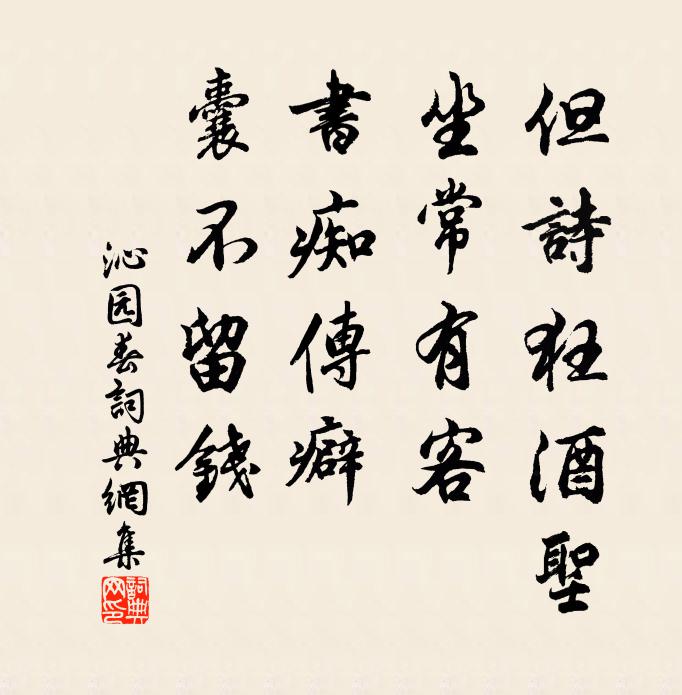 但詩狂酒聖
坐常有客
書痴傳癖
囊不留錢
沁园春詞典網集
詞典網印